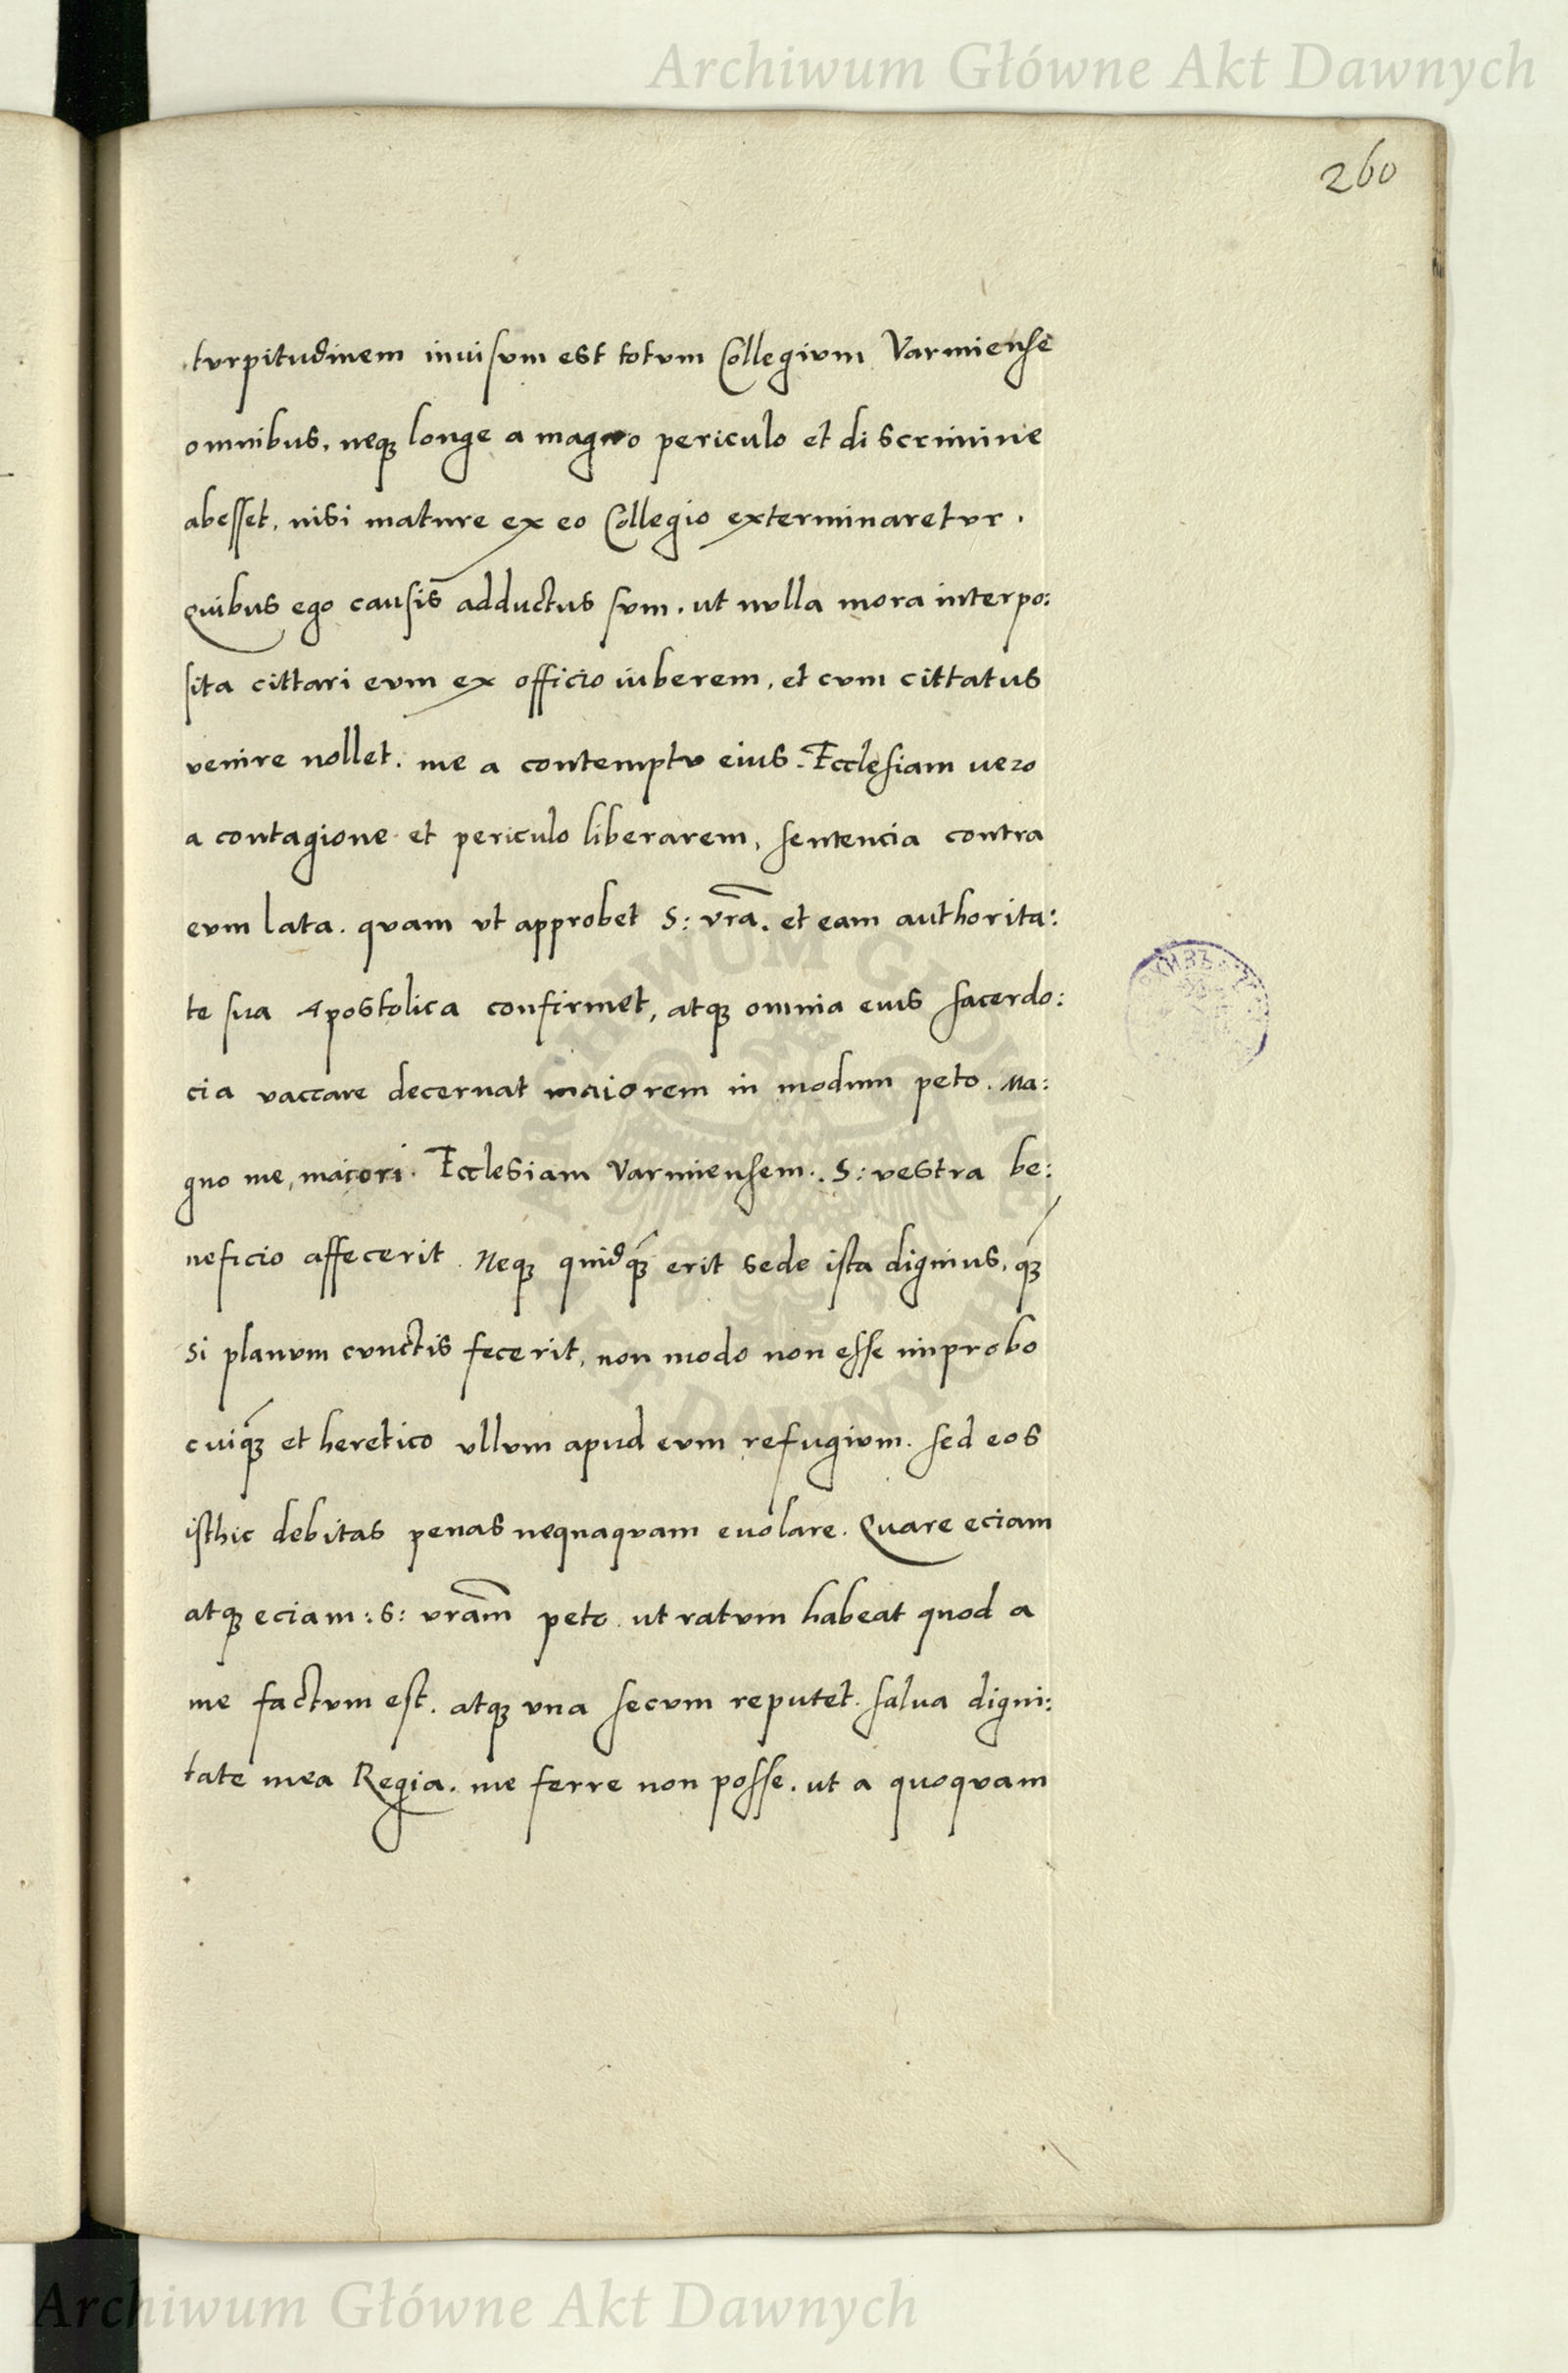 Archiwum Główne Akt Dawnych
260
turpitudinem inuisum est totum Collegium Varmiense
omnibus, neqꝫ longe a magno periculo et discrimine
abesset, nisi mature ex eo Collegio exterminaretur.
Quibus ego causis adductus sum. ut nulla mora interpo:
sita cittari eum ex officio iuberem, et cum cittatus
venire nollet. me a contemptu eius. Ecclesiam uero
a contagione et periculo liberarem, sentencia contra
eum lata. quam ut approbet S: vrã. et eam authorita:
te sua Apostolica confirmet, atqꝫ omnia eius sacerdo:
cia vaccare decernat maiorem in modum peto. Ma:
gno me, maiori. Ecclesiam Varmiensem. S: vestra be:
neficio affecerit. Neqꝫ quidqꝫ́ erit sede ista dignius, qꝫ́
si planum cunctis fecerit, non modo non esse improbo
cuiqꝫ́ et heretico ullum apud eum refugium. sed eos
isthic debitas penas nequaquam euolare. Quare eciam
atqꝫ eciam: S: vrãm peto. ut ratum habeat quod a
me factum est. atqꝫ una secum reputet. salua digni:
tate mea Regia. me ferre non posse. ut a quoquam
ARCHIWUM GŁÓWNE AKT DAWNYCH
Archiwum Główne Akt Dawnych